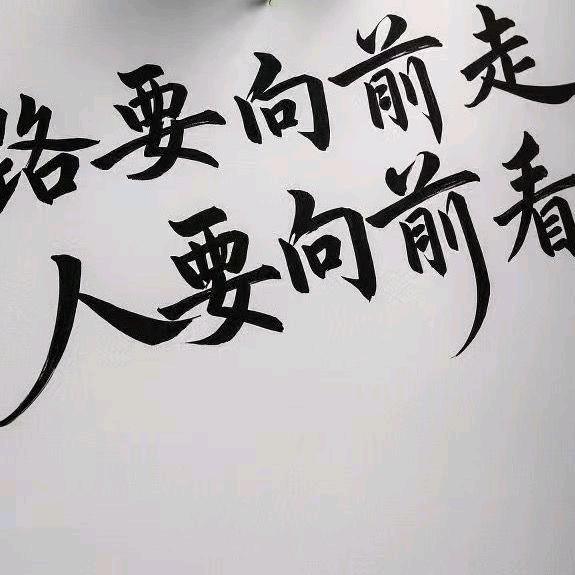 路要向前走
人要向前看